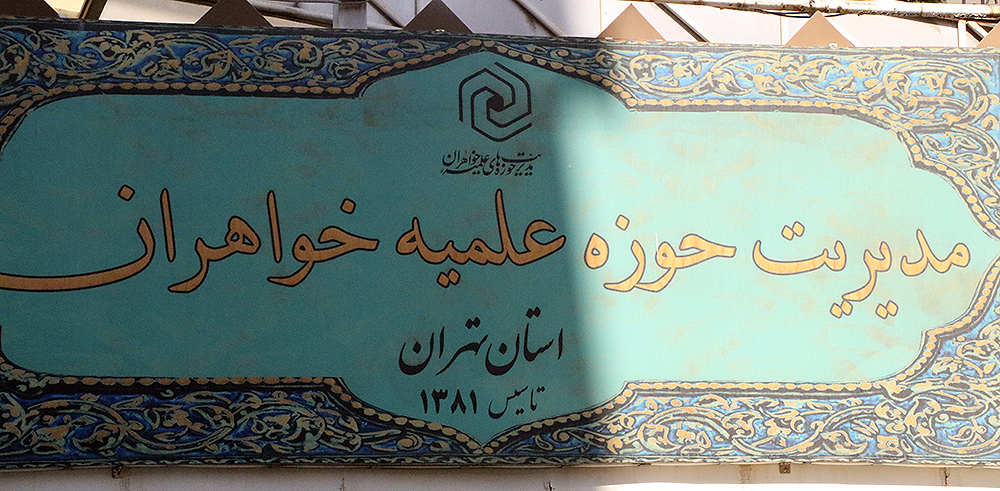 مدیریت حوزه های علمیه خواهران
مدیریت حوزه علمیه خواهران
استان تهران
تاسیس ۱۳۸۱